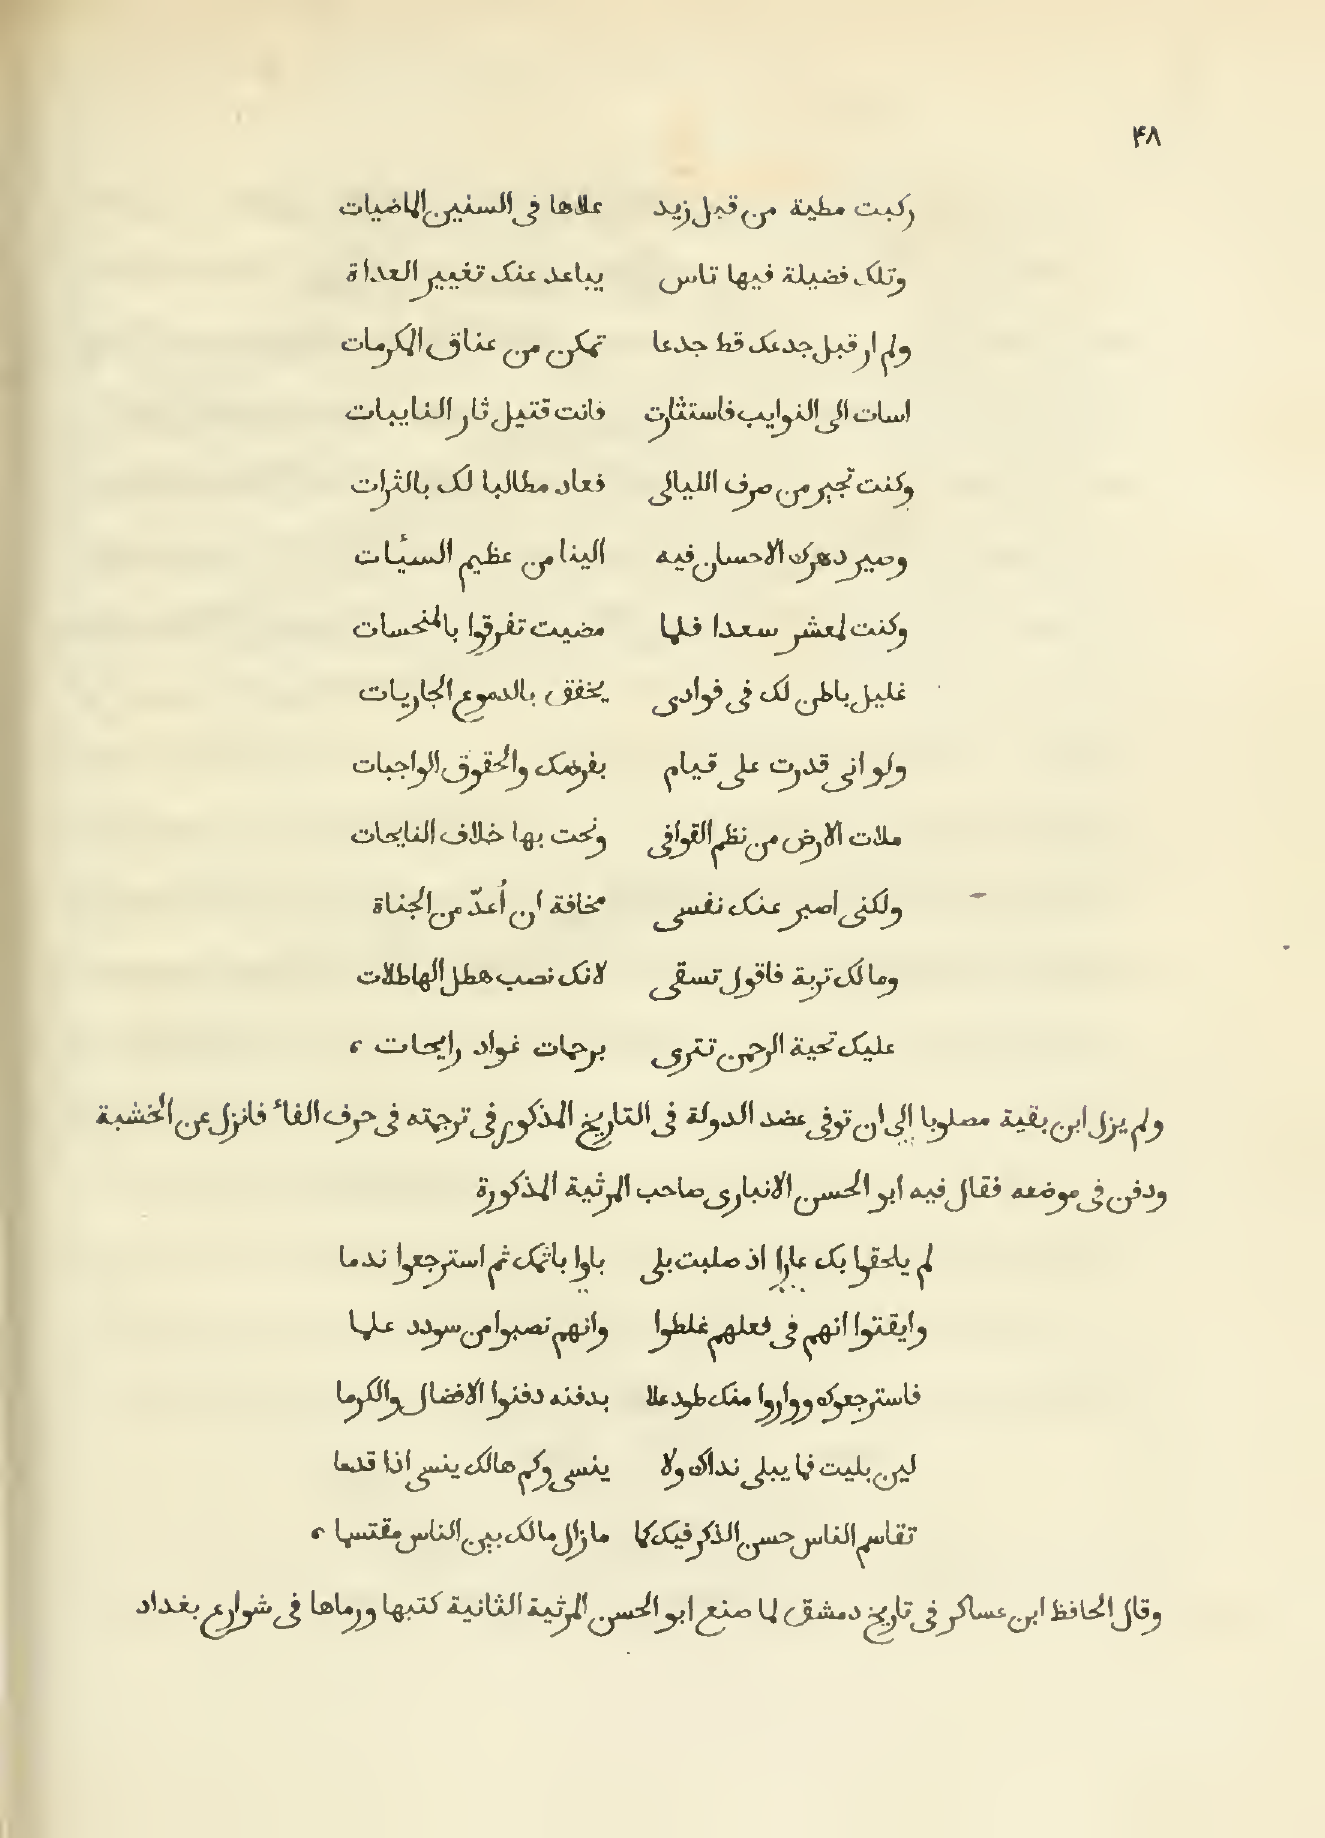 ۴۸
ركبت مطية من قبل زيد علاها فى السنين الماضيات
وتلك فضيلة فيها تاس يباعد عنك تغيير العداة
ولم ار قبل جدعك قط جدعا تمكن من عناق المكرمات
اسات الى النوايب فاستثارت فانت قتيل ثار النايبات
وكنت تجير من صرف الليالى فعاد مطالبا لك بالثرات
وصير دهرك الاحسان فيه الينا من عظيم السيُات
وكنت لمعشر سعدا فلما مضيت تفرقوا بالمنحسات
غليل باطن لك فى فوادى يخفق بالدموع الجاريات
ولو انى قدرت على قيام بفرضك والحقوق الواجبات
ملات الارض من نظم القوافى ونحت بها خلاف النايحات
ولكنى اصبر عنك نفسى مخافة ان اُعدّ من الجناة
وما لك تربة فاقول تسقى لانك نصب هطل الهاطلات
عليك تحية الرحمن تترى برحمات غواد رايحات ،
ولم يزل ابن بقية مصلوبا الى ان توفى عضد الدولة فى التاريخ المذكور فى ترجمته فى حرف الفاء فانزل عن الخشبة
ودفن فى موضعه فقال فيه ابو الحسن الانبارى صاحب المرثية المذكورة
لم يلحقوا بك عارا اذ صلبت بلى باوا باثمك ثم استرجعوا ندما
وايقنوا انهم فى فعلهم غلطوا وانهم نصبوا من سودد علما
فاسترجعوك وواروا منك طود علا بدفنه دفنوا الافضال والكرما
لين بليت فما يبلى نداك ولا ينسى وكم هالك ينسى اذا قدما
تقاسم الناس حسن الذكر فيك كما ما زال مالك بين الناس مقتسما ،
وقال الحافظ ابن عساكر فى تاريخ دمشق لما صنع ابو الحسن المرثية الثانية كتبها ورماها فى شوارع بغداد